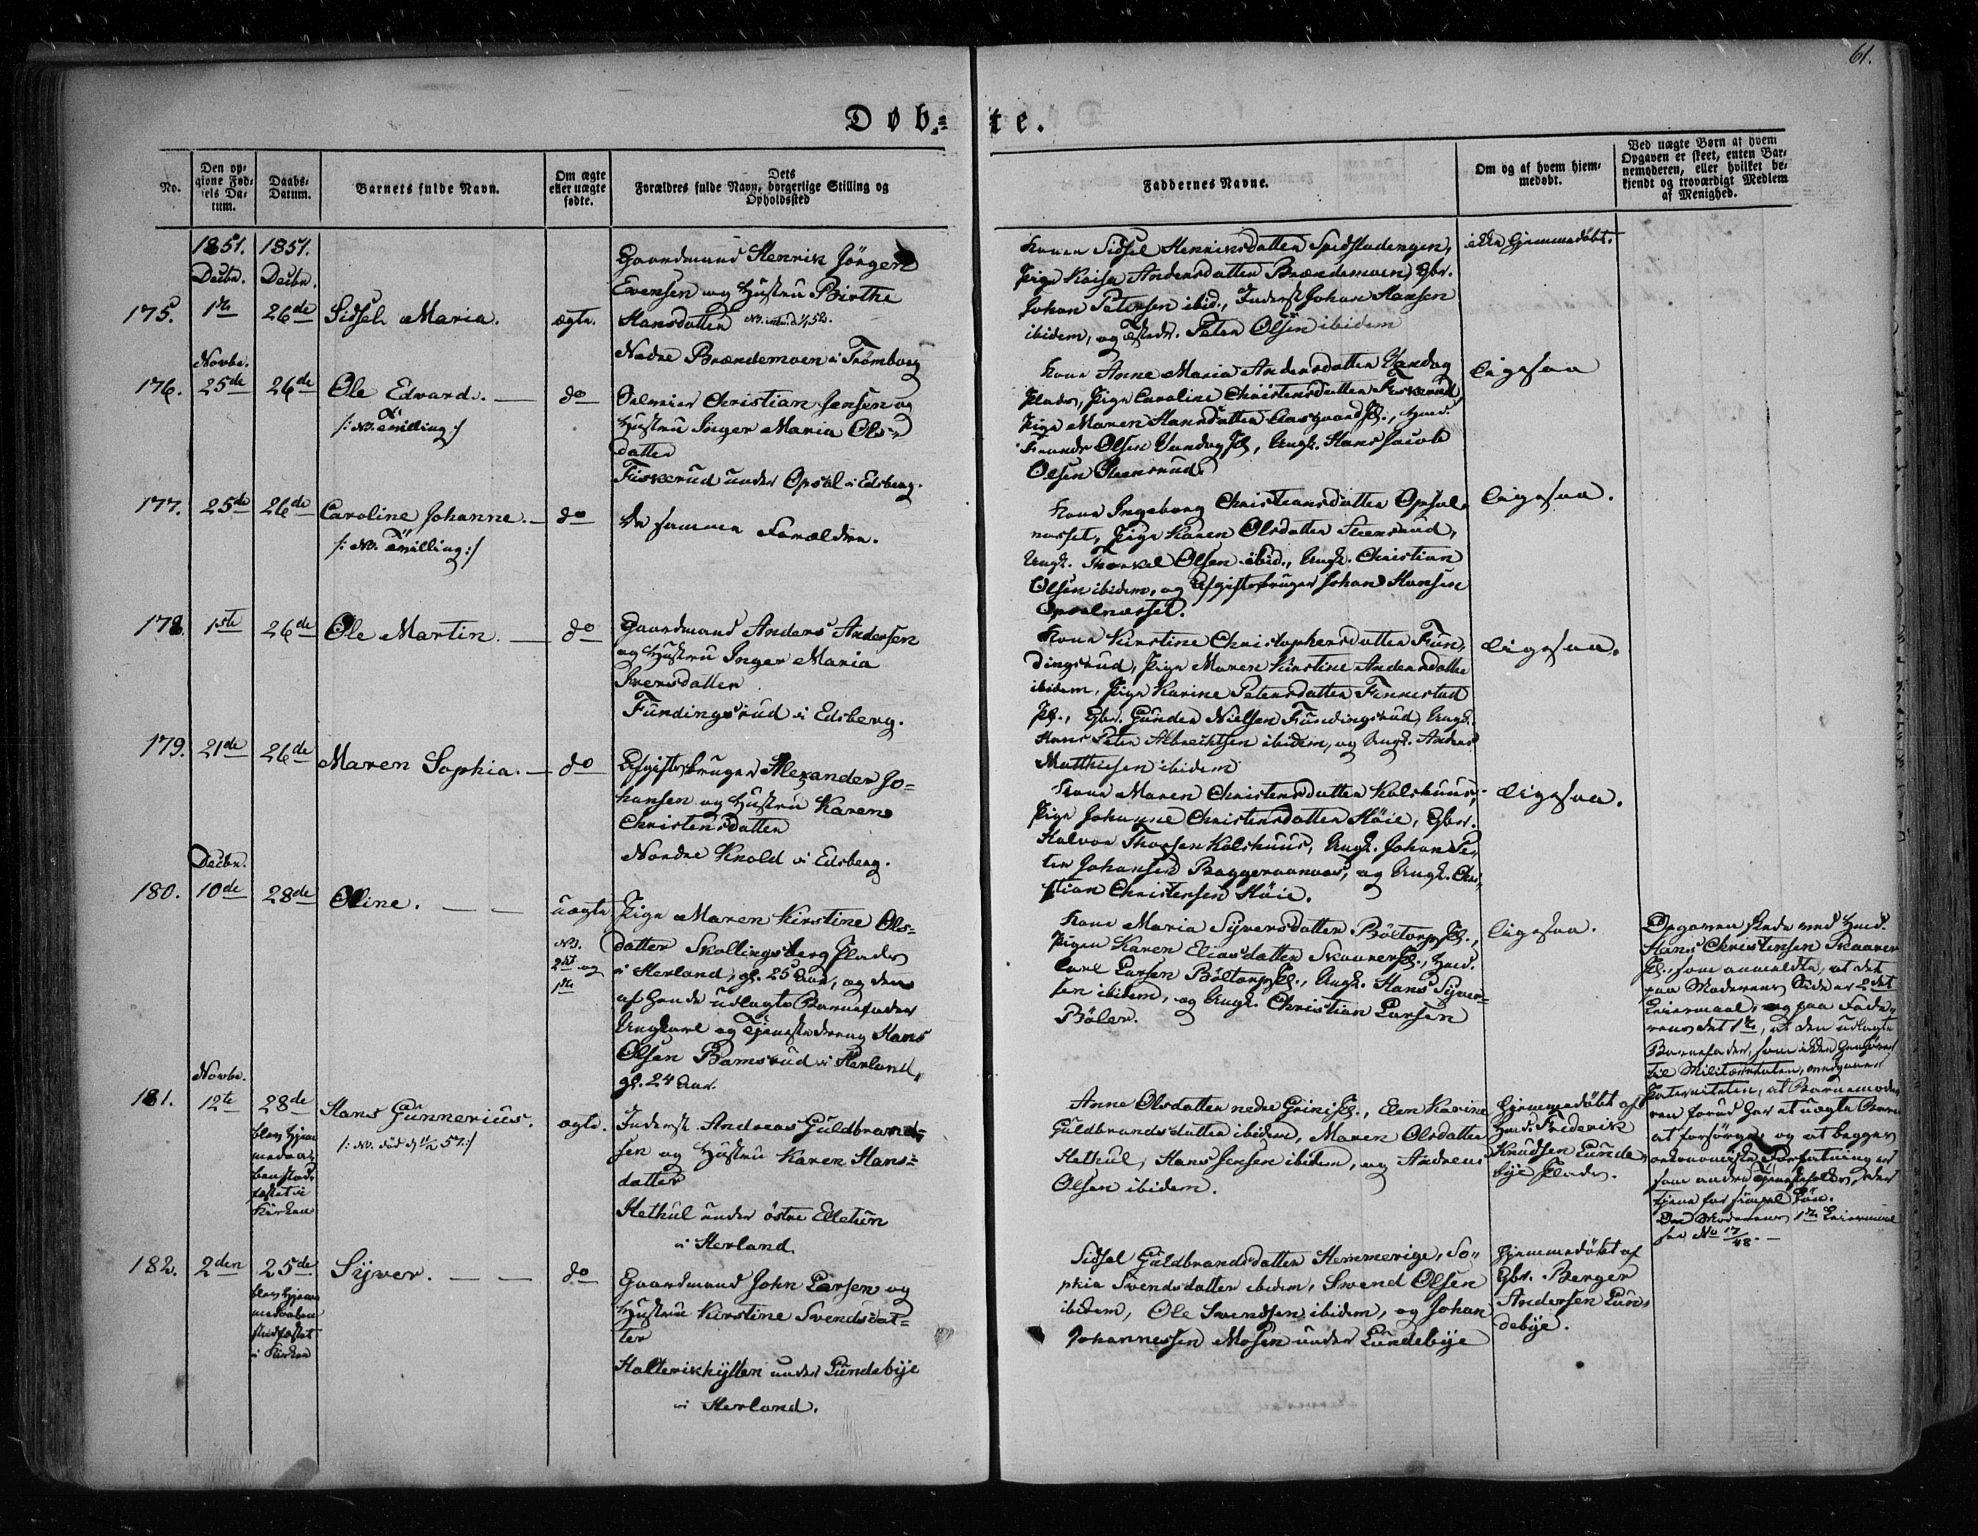 61.
Døb= te.
No.
Den op-
givne Fød-
sels Da-
tum.
Daabs-
Datum.
Barnets fulde Navn.
Om ægte
eller uægte
fødte.
Dets
Forældres fulde Navn, borgerlige Stilling og
Opholdssted
Faddernes Navne.
Om og af hvem hjem-
medøbt.
Ved uægte Børn af hvem
Opgaven er skeet, enten Bar-
nemoderen, eller hvilket be-
kjendt og troværdigt Medlem
af Menighed.
1851. 1851.
Decbr. Decbr.
175. 1ste 26de Sidsel Maria. ægte.
Gaardmand Henrik Jörgen
Evensen og Hustru Birthe
Hansdatter
Nedre Brændemoen i Trömborg
Kone Sidsel Henriksdatter Spidstadengen,
Pige Kaisa Andersdatter Brændemoen, Gbr.
Johan Petersen ibid., Inderst Johan Hansen
ibidem, og Peter Olsen ibidem
ikke Hjemmedöbt.
Novbr.
176. 25de 26de Ole Edvard. — do
/: NB. Tvilling :/
Christian Jensen og
Hustru Inger Maria Ols-
datter
Fiskerud under Opsal i Edsberg.
Kone Anne Maria Andersdatter
Plads, Pige Caroline Christensdatter Fiskerud,
Pige Maren Hansdatter
Olsen Ungk. Hans Jacob
Olsen Steensrud.
ligesaa
177. 25de 26de Caroline Johanne. — do
/: NB. Tvilling :/
De samme Forældre.
Kone Ingeborg Christiansdatter Opsal-
næsset, Pige Karen Olsdatter Steensrud,
Ungk. Thorkel Olsen ibid., Ungk. Christian
Olsen ibidem, og Afgiftsbruger Johan Hansen
Opsalnæsset.
ligesaa.
178. 1ste 26de Ole Martin. — do
Gaardmand Anders Andersen
og Hustru Inger Maria
Iversdatter
Fundingsrud i Edsberg.
Kone Kirstine Christophersdatter Fun-
dingsrud, Pige Maren Kirstine Andersdatter
ibidem, Pige Karine Petersdatter Finnestad
Pl., Gbr. Gunder Nielsen Fundingsrud, Ungk.
Hans Peter Albrechtsen ibidem, og Ungk. Anders
Matthisen ibidem.
ligesaa.
179. 21de 26de Maren Sophia. — do
Afgiftsbruger Alexander Jo-
hansen og Hustru Karen
Christensdatter
Nordre Knold i Edsberg.
Kone Maren Christensdatter Kolshuus,
Pige Johanne Christensdatter Höie, Gbr.
Halvor Thoresen Kolshuus, Ungk. Johan Pe-
ter Johansen og Ungk. Chri-
stian Christensen Höie.
ligesaa.
Decbr.
180. 10de 28de Oline. — — uægte
NB.
2det og
1ste
Pige Maren Kirstine Ols-
datter Skollingsberg Plads
i Herland, gl. 25 Aar, og den
af hende udlagte Barnefader
Ungkarl og Tjenestedreng Hans
Olsen Ramsrud i Herland,
gl. 24 Aar.
Kone Maria Syversdatter Böltorp Pl.,
Pigen Karen Eliasdatter Skaarer Pl., Hmd.
Carl Larsen Böltorp Pl., Ungk. Hans Syver-
sen ibidem, og Ungk. Christian Larsen
Böler.
ligesaa.
Opgaven skede med Hmd.
Hans Christensen Skaarer
Pl., som anmeldte, at det
paa Moderens Side er 2det
Leiermaal, og paa Fade-
rens det 1ste, at den udlagte
Barnefader, som ikke henhörer
til Militæretaten,
Paterniteten, at Barnemode-
ren forud har et uægte Barn
at forsörge, og at begges
oekonomiske Forfatning er
som andre Tjenestefolks, der
tjene for simpel Lön.
Om Moderens 1ste Leiermaal
see No 17/48. —
Novbr.
181. 12te 28de Hans Gunnerius. ægte.
blev hjem-
medöbt
stad-
fæstet i
Kirken
Inderst Andreas Guldbrand-
sen og Hustru Karen Hans-
datter
Hethul under östre Elletun
i Herland.
Anne Olsdatter nedre Grini Pl., Elen Karine
Guldbrandsdatter ibidem, Maren Olsdatter
Hethul, Hans Jensen ibidem, og Andreas
Olsen ibidem.
Hjemmedöbt af
Hmd. Frederik
Knudsen Lunde-
bye Plads.
182. 2den 25de Syver. — — do
blev hjem-
stadfæstet
i Kirken
Gaardmand John Larsen og
Hustru Kirstine Svendsdat-
ter
under Lundebye
i Herland.
Sidsel Guldbrandsdatter Hemmerige, So-
phia Svendsdatter ibidem, Svend Olsen
ibidem, Ole Svendsen ibidem, og Johan
Johannessen Mosen under Lundebye
Hjemmedöbt af
Gbr. Berger
Andersen Lun-
debye.